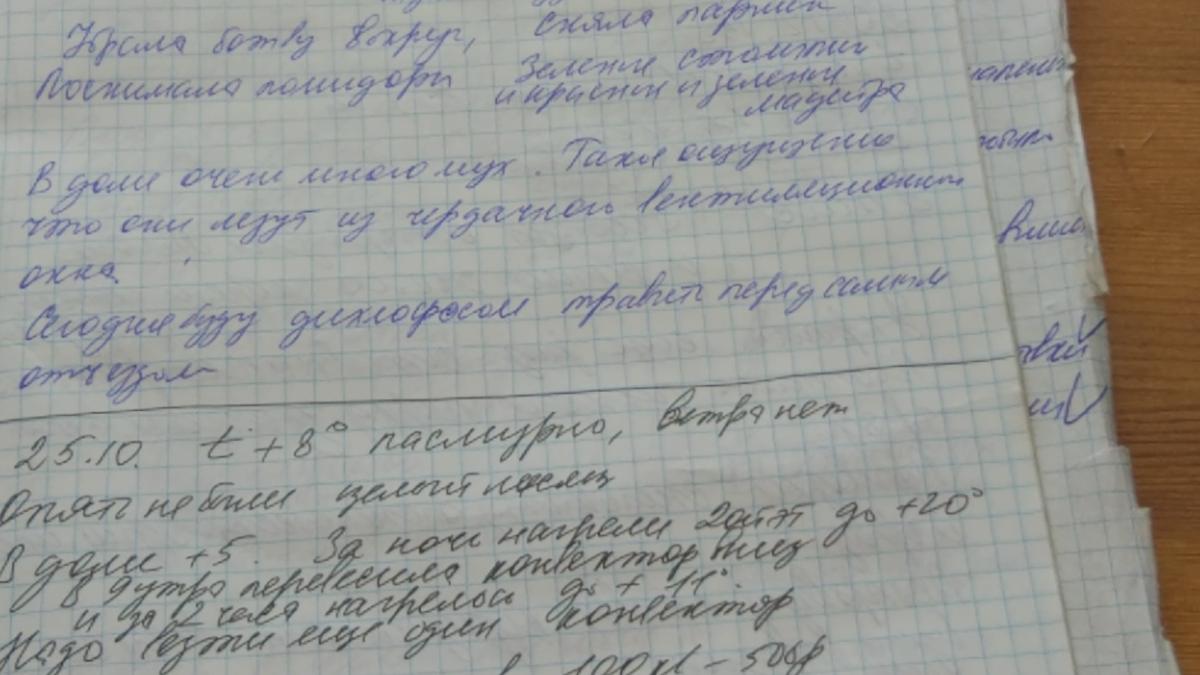 Убрала ботву вокруг, сняла парник
Поснимала помидоры зеленые
и красные и зеленые
В доме очень много мух. Такое ощущение
что они лезут из чердачного вентиляционного
окна
Сегодня буду дихлофосом травить перед самым
отъездом
25.10. t +8° пасмурно, ветра нет
Опять не были целый месяц
В доме +5. За ночь нагрели 2ой эт до +20°
в утро перевесила конвектор вниз
и за 2 часа нагрелось до +11°.
Надо везти еще один конвектор